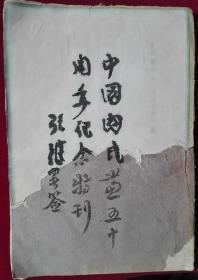 中國國民黨五十
周年紀念特刊
張繼署簽